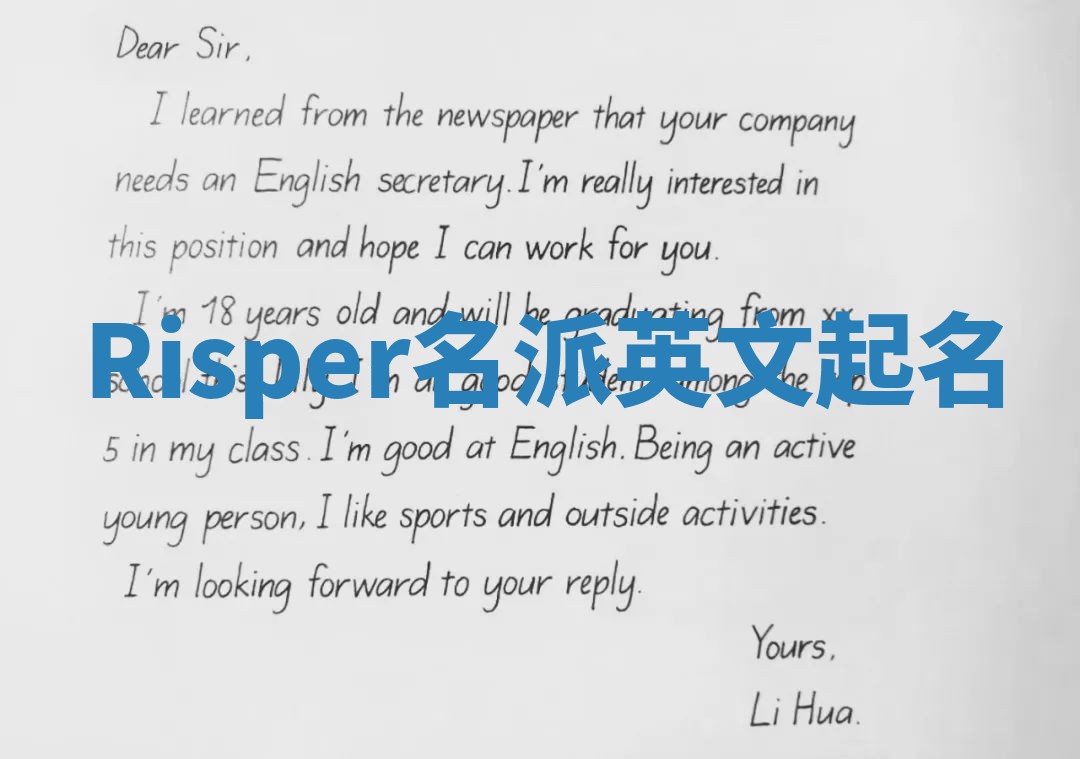 Dear Sir,
I learned from the newspaper that your company
needs an English secretary. I'm really interested in
this position and hope I can work for you.
I'm 18 years old and will be graduating from xx
Risper名派英文起名
school this July. I'm a good student among the top
5 in my class. I'm good at English. Being an active
young person, I like sports and outside activities.
I'm looking forward to your reply.
Yours,
Li Hua.